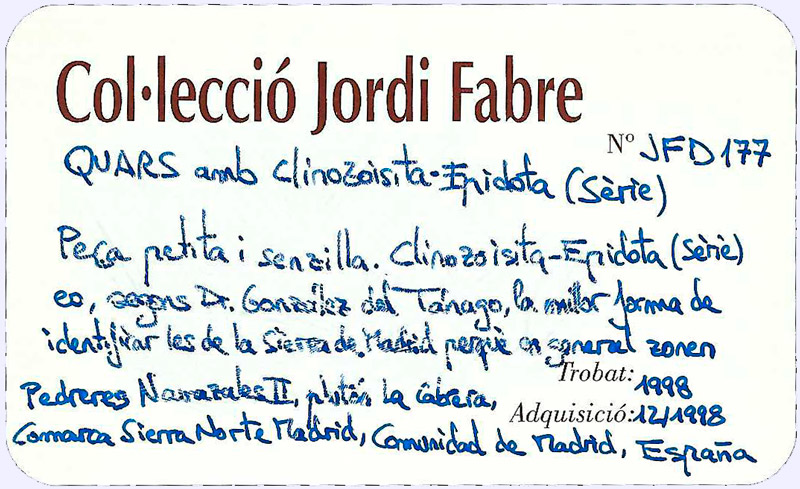 Col·lecció Jordi Fabre
Nº JFD177
QUARS amb Clinozoisita-Epidota (Sèrie)
Peça petita i senzilla. Clinozoisita-Epidota (Sèrie)
eo, segons Dr. González del Tánago, la millor forma de
identificar les de la Sierra de Madrid perquè en general zonen
Trobat: 1998
Pedreres Navazales II, plutón La Cabrera,
Adquisició: 12/1998
Comarca Sierra Norte Madrid, Comunidad de Madrid, España